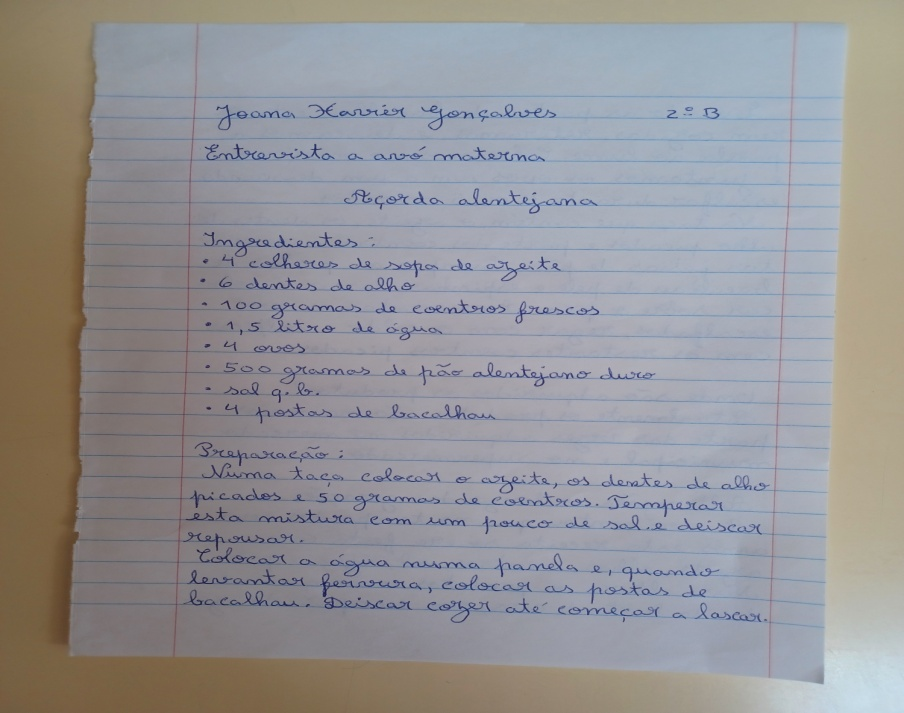 Joana Xavier Gonçalves 2º B
Entrevista a avó materna
Açorda alentejana
Ingredientes:
• 4 colheres de sopa de azeite
• 6 dentes de alho
• 100 gramas de coentros frescos
• 1,5 litro de água
• 4 ovos
• 500 gramas de pão alentejano duro
• sal q.b.
• 4 postas de bacalhau
Preparação:
Numa taça colocar o azeite, os dentes de alho
picados e 50 gramas de coentros. Temperar
esta mistura com um pouco de sal e deiscar
repousar.
Colocar a água numa panela e, quando
levantar fervura, colocar as postas de
bacalhau. Deiscar cozer até começar a lascar.